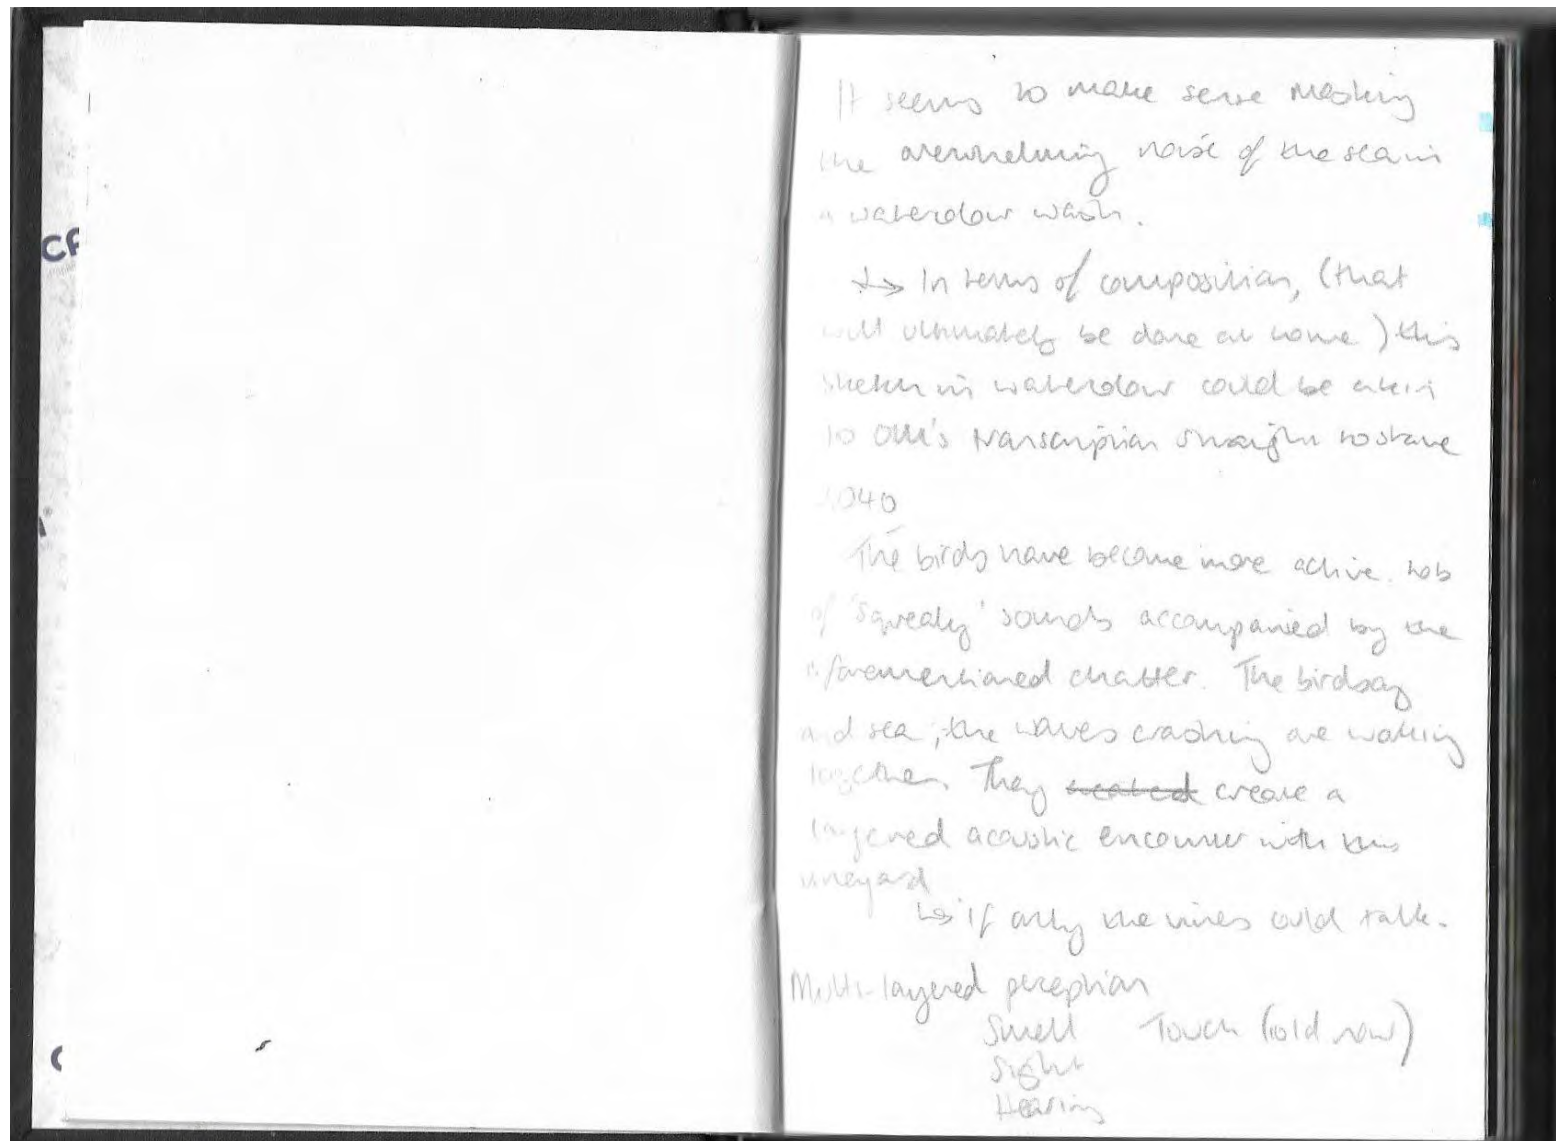 CF
It seems to make sense masking
the overwhelming noise of the sea in
a watercolour wash.
↳ In terms of composition, (that
will ultimately be done at home) this
sketch in watercolour could be akin
to OM's transcription straight to stave
1040
The birds have become more active. Lots
of 'squeaky' sounds accompanied by the
aforementioned chatter. The birdsong
and sea, the waves crashing are working
together. They created create a
layered acoustic encounter with this
vineyard
↳ If only the vines could talk.
Multi-layered perception
Smell Touch (cold now)
Sight
Hearing